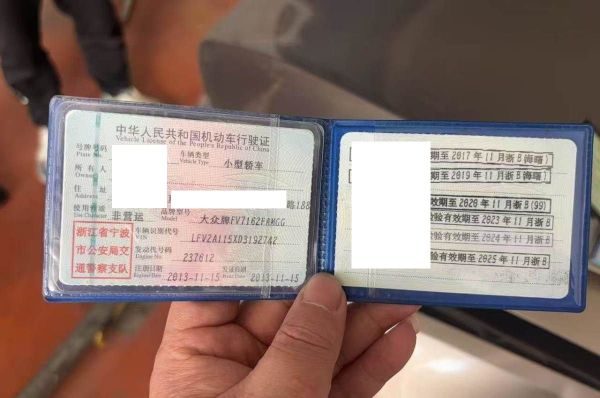 中华人民共和国机动车行驶证
Vehicle License of the People's Republic of China
号牌号码
Plate No.
车辆类型
Vehicle Type
小型轿车
所有人
Owner
住址
Address
路188
使用性质
Use Character
非营运
品牌型号
Model
大众牌FV7162FAMGG
浙江省宁波
市公安局交
通警察支队
车辆识别代号
VIN
LFV2A115XD3192742
发动机号码
Engine No.
237612
注册日期
Register Date
2013-11-15
发证日期
Issue Date
2013-11-15
期至2017年11月浙B(海曙)
期至2019年11月浙B(海曙)
效期至2020年11月浙B(99)
验有效期至2023年11月浙B
验有效期至2024年11月浙B
验有效期至2025年11月浙B